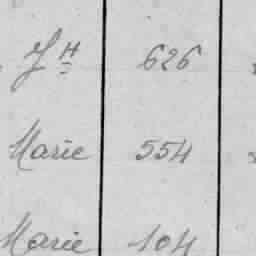 JH 626
Marie 554
Marie 104